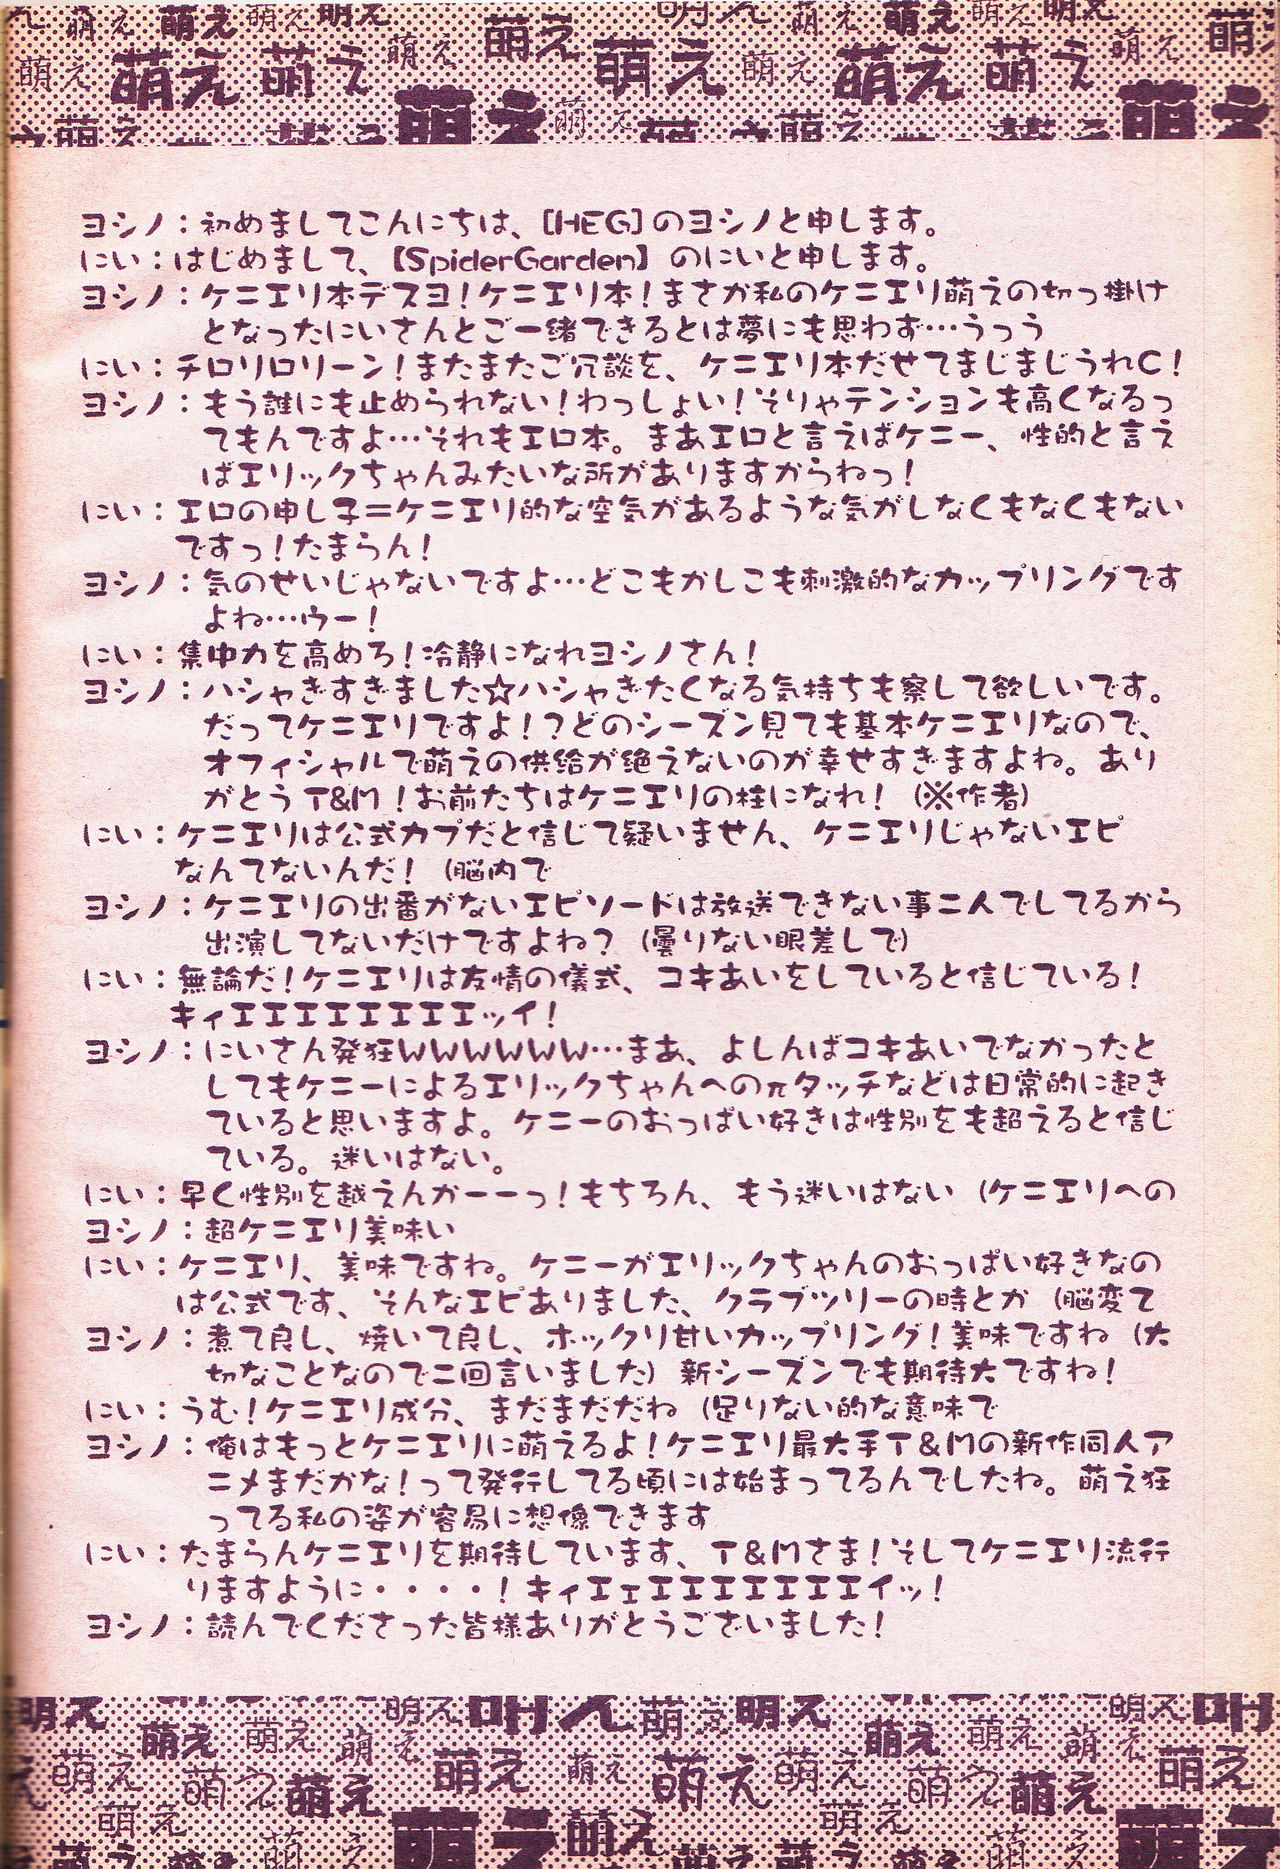 萌え 萌え 萌え 萌え 萌え 萌え 萌え 萌え 萌え
ヨシノ：初めましてこんにちは、【HEG】のヨシノと申します。
にい：はじめまして、【SpiderGarden】のにいと申します。
ヨシノ：ケニエリ本デスヨ！ケニエリ本！まさか私のケニエリ萌えの切っ掛け
となったにいさんとご一緒できるとは夢にも思わず…うっう
にい：チロリロリーン！またまたご冗談を、ケニエリ本だせてまじまじうれC！
ヨシノ：もう誰にも止められない！わっしょい！そりゃテンションも高くなるっ
てもんですよ…それもエロ本。まあエロと言えばケニー、性的と言え
ばエリックちゃんみたいな所がありますからねっ！
にい：エロの申し子＝ケニエリ的な空気があるような気がしなくもなくもない
ですっ！たまらん！
ヨシノ：気のせいじゃないですよ…どこもかしこも刺激的なカップリングです
よね…ウー！
にい：集中力を高めろ！冷静になれヨシノさん！
ヨシノ：ハシャぎすぎました☆ハシャぎたくなる気持ちも察して欲しいです。
だってケニエリですよ！？どのシーズン見ても基本ケニエリなので、
オフィシャルで萌えの供給が絶えないのが幸せすぎますよね。あり
がとうT&M！お前たちはケニエリの柱になれ！（※作者）
にい：ケニエリは公式カプだと信じて疑いません、ケニエリじゃないエピ
なんてないんだ！（脳内で
ヨシノ：ケニエリの出番がないエピソードは放送できない事二人でしてるから
出演してないだけですよね？（曇りない眼差しで）
にい：無論だ！ケニエリは友情の儀式、コキあいをしていると信じている！
キィエエエエエエエエッイ！
ヨシノ：にいさん発狂WWWWWW…まあ、よしんばコキあいでなかったと
してもケニーによるエリックちゃんへのπタッチなどは日常的に起き
ていると思いますよ。ケニーのおっぱい好きは性別をも超えると信じ
ている。迷いはない。
にい：早く性別を越えんかーーっ！もちろん、もう迷いはない（ケニエリへの
ヨシノ：超ケニエリ美味い
にい：ケニエリ、美味ですね。ケニーがエリックちゃんのおっぱい好きなの
は公式です、そんなエピありました、クラブツリーの時とか（脳変て
ヨシノ：煮て良し、焼いて良し、ホックリ甘いカップリング！美味ですね（大
切なことなので二回言いました）新シーズンでも期待大ですね！
にい：うむ！ケニエリ成分、まだまだだね（足りない的な意味で
ヨシノ：俺はもっとケニエリに萌えるよ！ケニエリ最大手T&Mの新作同人ア
ニメまだかな！って発行してる頃には始まってるんでしたね。萌え狂
ってる私の姿が容易に想像できます
にい：たまらんケニエリを期待しています、T&Mさま！そしてケニエリ流行
りますように・・・・！キィエェエエエエエエエイッ！
ヨシノ：読んでくださった皆様ありがとうございました！
萌え 萌え 萌え 萌え 萌え 萌え 萌え 萌え 萌え